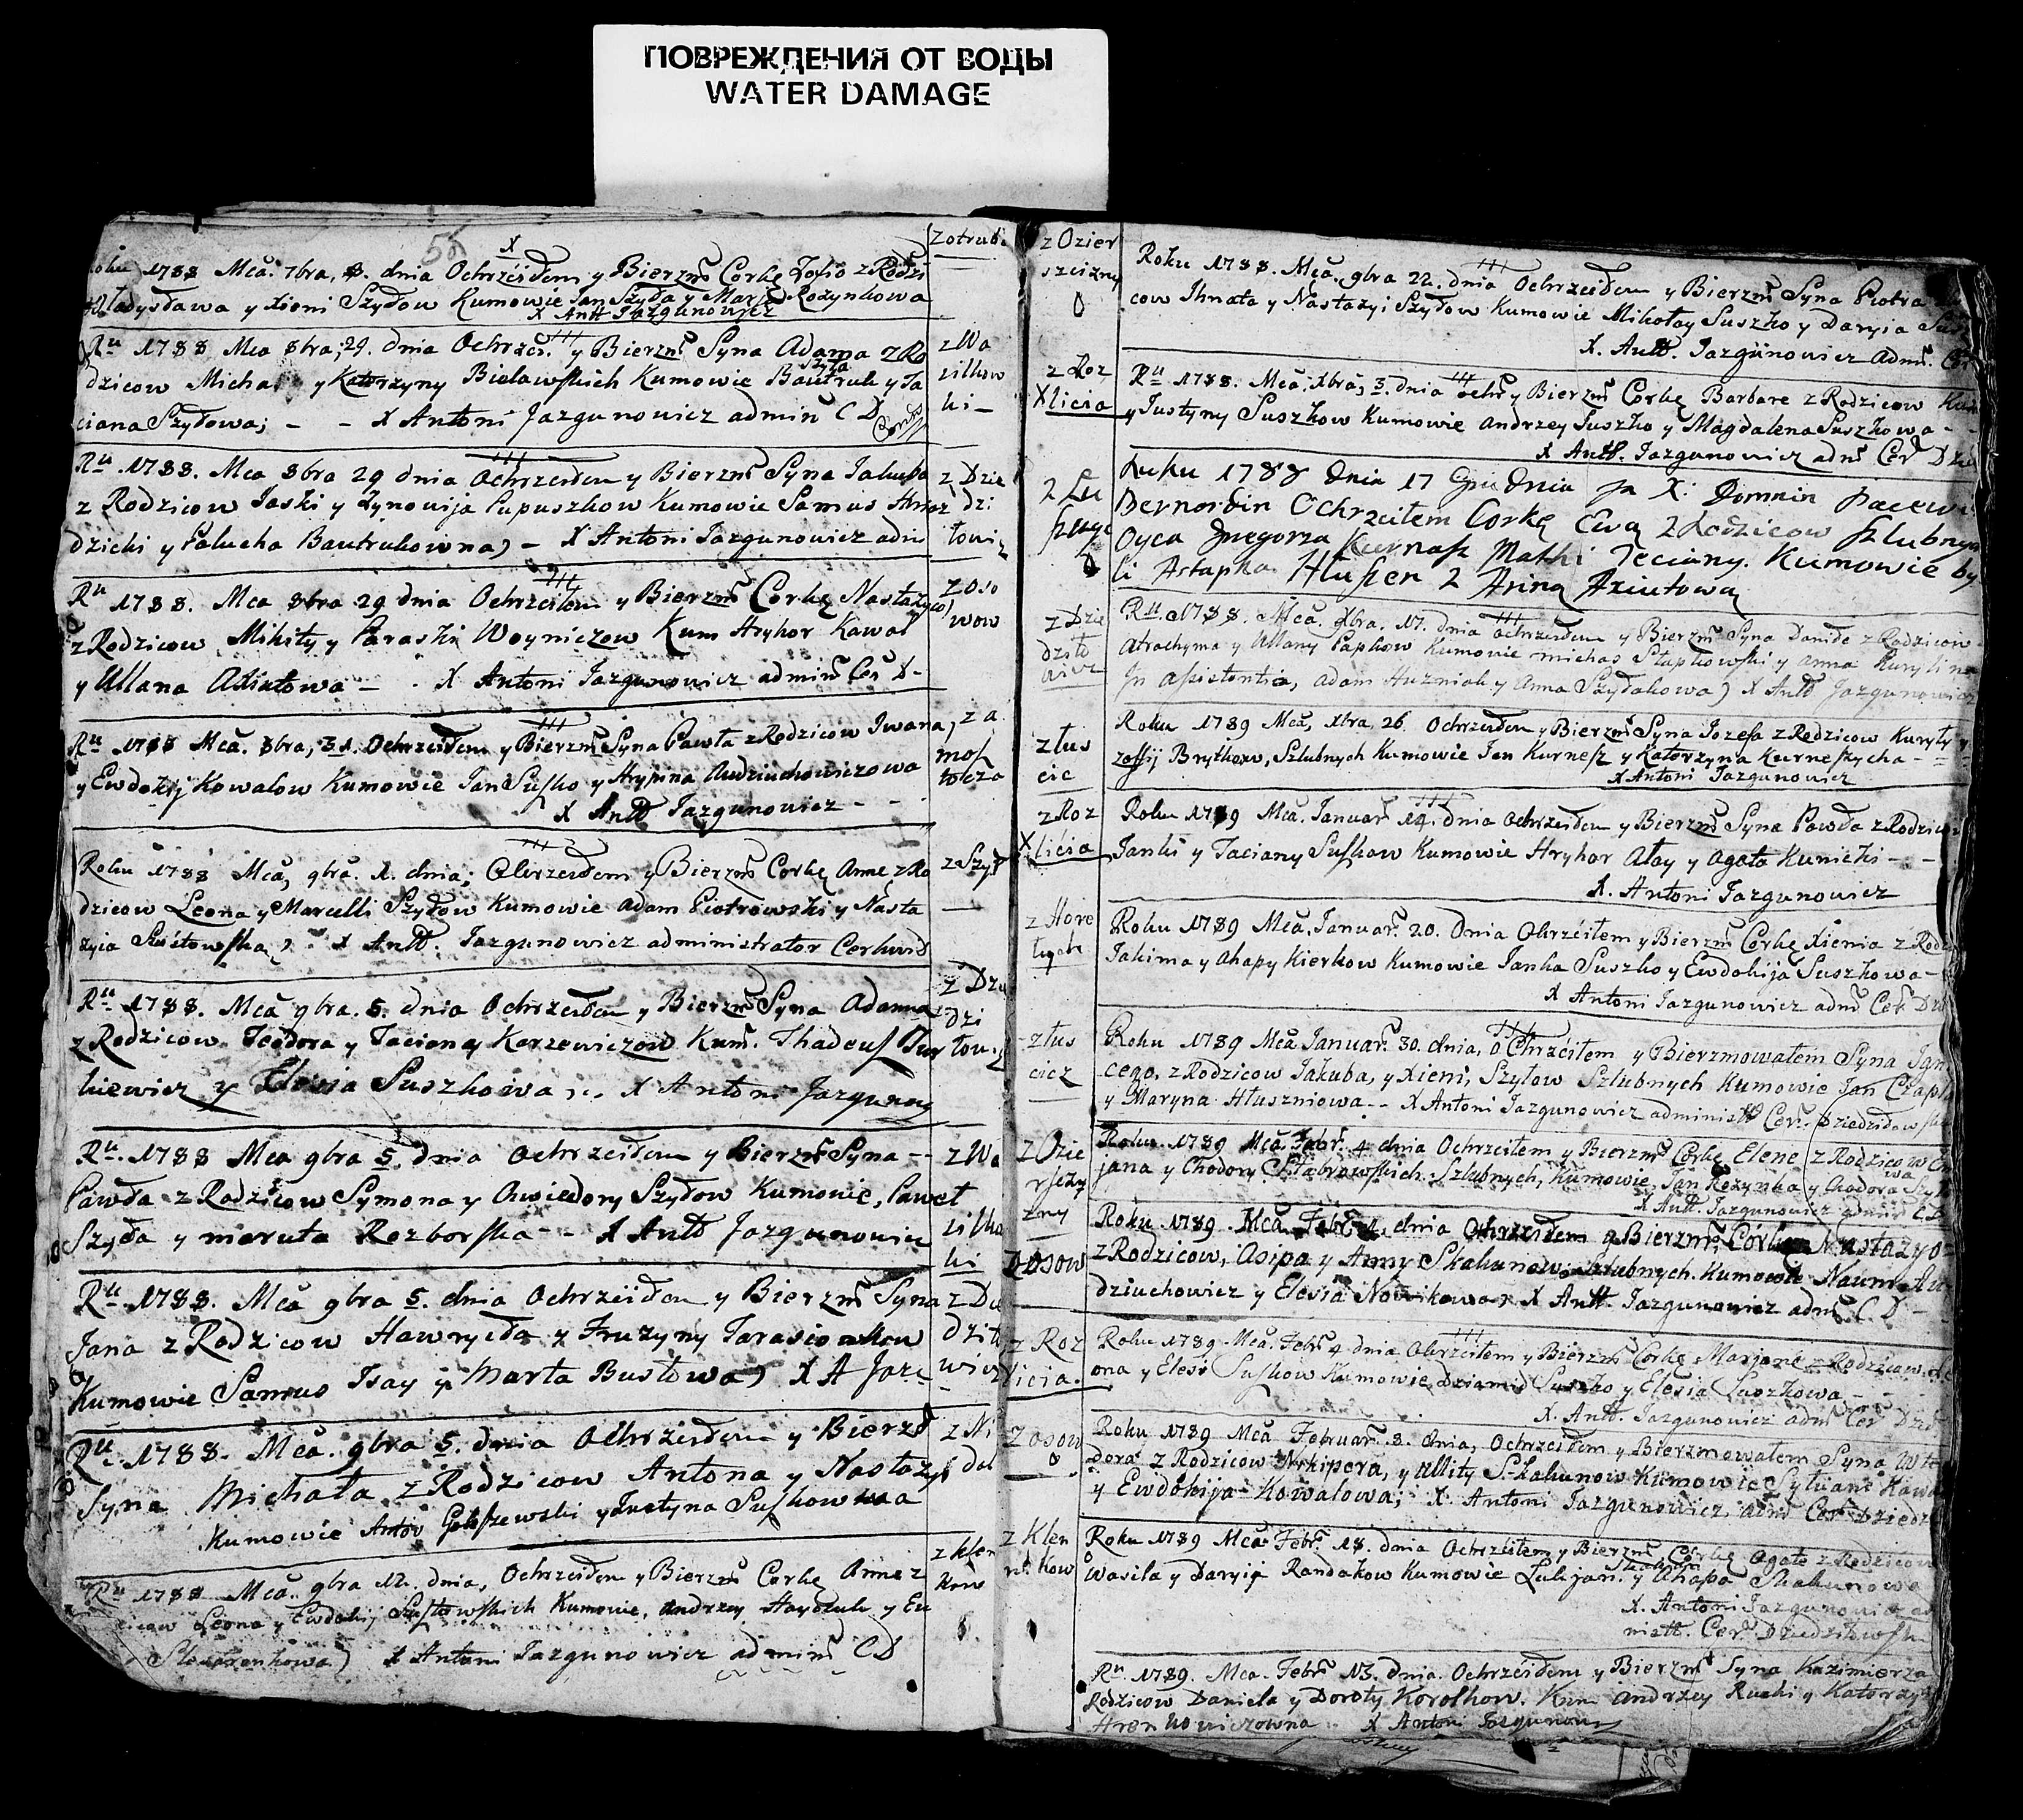 ПОВРЕЖДЕНИЯ ОТ ВОДЫ
WATER DAMAGE
58
X
z otrub
Roku 1788 Mca. 7bra, 8. dnia Ochrzciłem y Bierzm Corkę Zofio z Rodzi
Władysława y Xioni Szydow Kumowie Jan Szyła y Marja Rozynkowa
X Antt Jazgunowicz
Ru 1788 Mca 8bra, 29. dnia Ochrzci. y Bierzm Syna Adama z Ro
dzicow Michała y Katarzyny Bielawskich Kumowie Bautruk Szyła y Ta
ciana Szyłowa; - - X Antoni Jazgunowicz admin C D
z Wa
silkow
ki -
Ru 1788. Mca 8bra 29 dnia Ochrzciłem y Bierzm Syna Jakuba
z Rodzicow Jaski y Zynowija Łapuszkow Kumowie Samus
dzicki y Palucha Bautrukowna) - X Antoni Jazgunowicz adm
z Dzie
dzi
łowi
Ru 1788. Mca 8bra 29 dnia Ochrzciłem y Bierzm Corkę Nastazyo
z Rodzicow Mikity y Paraski Woyniczow Kum Hryhor Kawal
y Ullana Adziutowa - . X Antoni Jazgunowicz admin Cer D-
z Oso
wow
Ru 1788 Mca. 8bra, 31. Ochrzciłem y Bierzm Syna Pawła z Rodzicow Iwana,
y Ewdokij Kowalow Kumowie Jan Susko y Hrypina Audziuchowiczowa
X Antt Jazgunowicz - -
z a
mos
tocza
Roku 1788 Mca, 9bra. 1. dnia; Ochrzciłem y Bierzm Corkę Anne z Ro
dzicow Leona y Marcelli Szyłow Kumowie Adam Piotrowski y Nasta
zyia X Antt. Jazgunowicz administrator Cerkwi
z Szył
Ru 1788. Mca 9bra. 5. dnia Ochrzciłem y Bierzm Syna Adama
z Rodzicow Teodora y Taciany Karzewiczow Kum. Thadeusz Jur
kiewicz y Elesia Suszkowa X Antoni Jazgunow
z Dzie
dzi
łow
Ru. 1788 Mca 9bra 5. dnia Ochrzciłem y Bierzm Syna -
Pawła z Rodzicow Symona y Awiedory Szyłow Kumowie, Paweł
Szyła y maruta Rezborska - - X Antt Jazgunowicz
z Wa
silko
ki
Ru 1788. Mca 9bra 5. dnia Ochrzciłem y Bierzm Syna
Jana z Rodzicow Hawryła y Fruzyny Tarasionkow
Kumowie Samus Isay y Marta Busłowa) X A Jazg
z Dzie
dziło
wicz
Ru. 1788. Mca. 9bra 5. dnia Ochrzciłem y Bierz
Syna Michała z Rodzicow Antona y Nastazyi
Kumowie Antoś Gołaszewski y Justyna Suskowna
z Ni
dal
Ru 1788 Mca. 9bra 12. dnia, Ochrzciłem y Bierzm Corkę Anne z
Rodzicow Leona y Ewdokij Kumowie, Andrzey Hayduk y Eu
X Antoni Jazgunowicz admin CD
z Klen
kow
z Ozier
szcizny
Roku 1788. Mca, 9bra 22. dnia Ochrzciłem y Bierzm Syna Piotra
cow Ihnata y Nastazyi Szyłow Kumowie Mikołay Suszko y Daryia Susz
X. Antt. Jazgunowicz adm. Cer
z Roz
X licia
Ru 1788. Mca. Xbra, 3. dnia ochr y Bierzm Corkę Barbare z Rodzicow
y Justyny Suszkow Kumowie Andrzey Suszko y Magdalena Suszkowa - -
X Antt. Jazgunowicz adm Cer Dzie
Ruku 1788 Dnia 17 Grudnia ja X: Domnin
Bernardin Ochrzciłem Corkę Ewą z Rodzicow szlubnych
Oyca Gregorza Kurnasz Matki Teciany. Kumowie by
li Astapka Hluszen z Arina Aziutową
z Dzie
dziło
wicz
Ru. 1788. Mca. Xbra. 17. dnia ochrzciłem y Bierzm Syna Daniłe z Rodzicow
Atrachyma y Ullany Papkow Kumowie Michaś Słupkowski y Anna
In Assistentia, Adam Huzniak y Anna Szyłakowa) X Antt Jazgunowicz
z łus
cic
Roku 1789 Mca, Xbra. 26 Ochrzciłem y Bierzm Syna Jozefa z Rodzicow Kuryły y
zofij Brytkow, Szlubnych Kumowie Jan Kurnesz y Katarzyna Kurneszycha -
X Antoni Jazgunowicz
z Roz
X licia
Roku 1789 Mca. Januar 14. dnia Ochrzciłem y Bierzm Syna Pawła z Rodzicow
Janki y Taciany Suskow Kumowie Hryhor Ałay y Agata Kunicki - -
X. Antoni Jazgunowicz
z Horo
Roku 1789 Mca. Januar. 20. Dnia Ohrzciłem y Bierzm Corkę Xienia z Rodz
Jakima y Ahapy Kierkow Kumowie Janka Suszko y Ewdokija Suszkowa -
X Antoni Jazgunowicz adm Cer Dzie
z łus
cicz
Roku 1789 Mca Januar. 30. dnia, Ochrzciłem y Bierzmowałem Syna Ign
cego, z Rodzicow Jakuba, y Xieni, Szyłow Szlubnych Kumowie Jan Czapl
y Maryna Hłuszniowa - - X Antoni Jazgunowicz administ Cer. Dziedziłow
z Ozie
rszczy
zny
Roku. 1789 Mca Febr. 4 dnia Ochrzciłem y Bierzm Corkę Elene z Rodzicow
jana y Chodory Szlubnych, Kumowie, Jan Rezynka y Chodora
X Antt. Jazgunowicz admin C. D
z Osow
Roku 1789. Mca Febr dnia Ochrzciłem y Bierzm, Córkę Nastazyo
z Rodzicow, Asipa y Anny Skakunow Szlubnych. Kumowie Naum Au
dziuchowicz y Elesia Nowikowa) X Antt. Jazgunowicz adm C. D -
z Roz
licia.
Roku 1789. Mca. Febr 4 dnia Ohrzciłem y Bierzm Corkę Marjane z Rodzicow
ona y Elesi Suskow Kumowie Dziamid Suszko y Elesia Suszkowa -
X. Antt. Jazgunowicz adm Cer Dzie
z osow
Roku 1789 Mca Februar. 8. dnia, Ochrzciłem y Bierzmowałem Syna
dora z Rodzicow Nikipera, y Ullity Skakunow Kumowie Sylwan Kawa
y Ewdokija Kowalowa; X. Antoni Jazgunowicz, adm Cer Dziedz
z Klen
Kow
Roku 1789 Mca Febr. 18. dnia Ochrzciłem y Bierzm Corkę Agate z Rodzicow
Wasila y Daryij Randakow Kumowie Lukjan Skakun y Ahapa Skakunowa
X. Antoni Jazgunowicz ad
nistt. Cer. Dziedziłows
Ru. 1789. Mca. Febr 13. dnia. Ochrzciłem y Bierzm Syna Kazimierza
Rodzicow Daniela y Doroty Korolkow. Kum Andrzey Rucki y Katarzy
Hrenkowiczowna. X Antoni Jazgunow